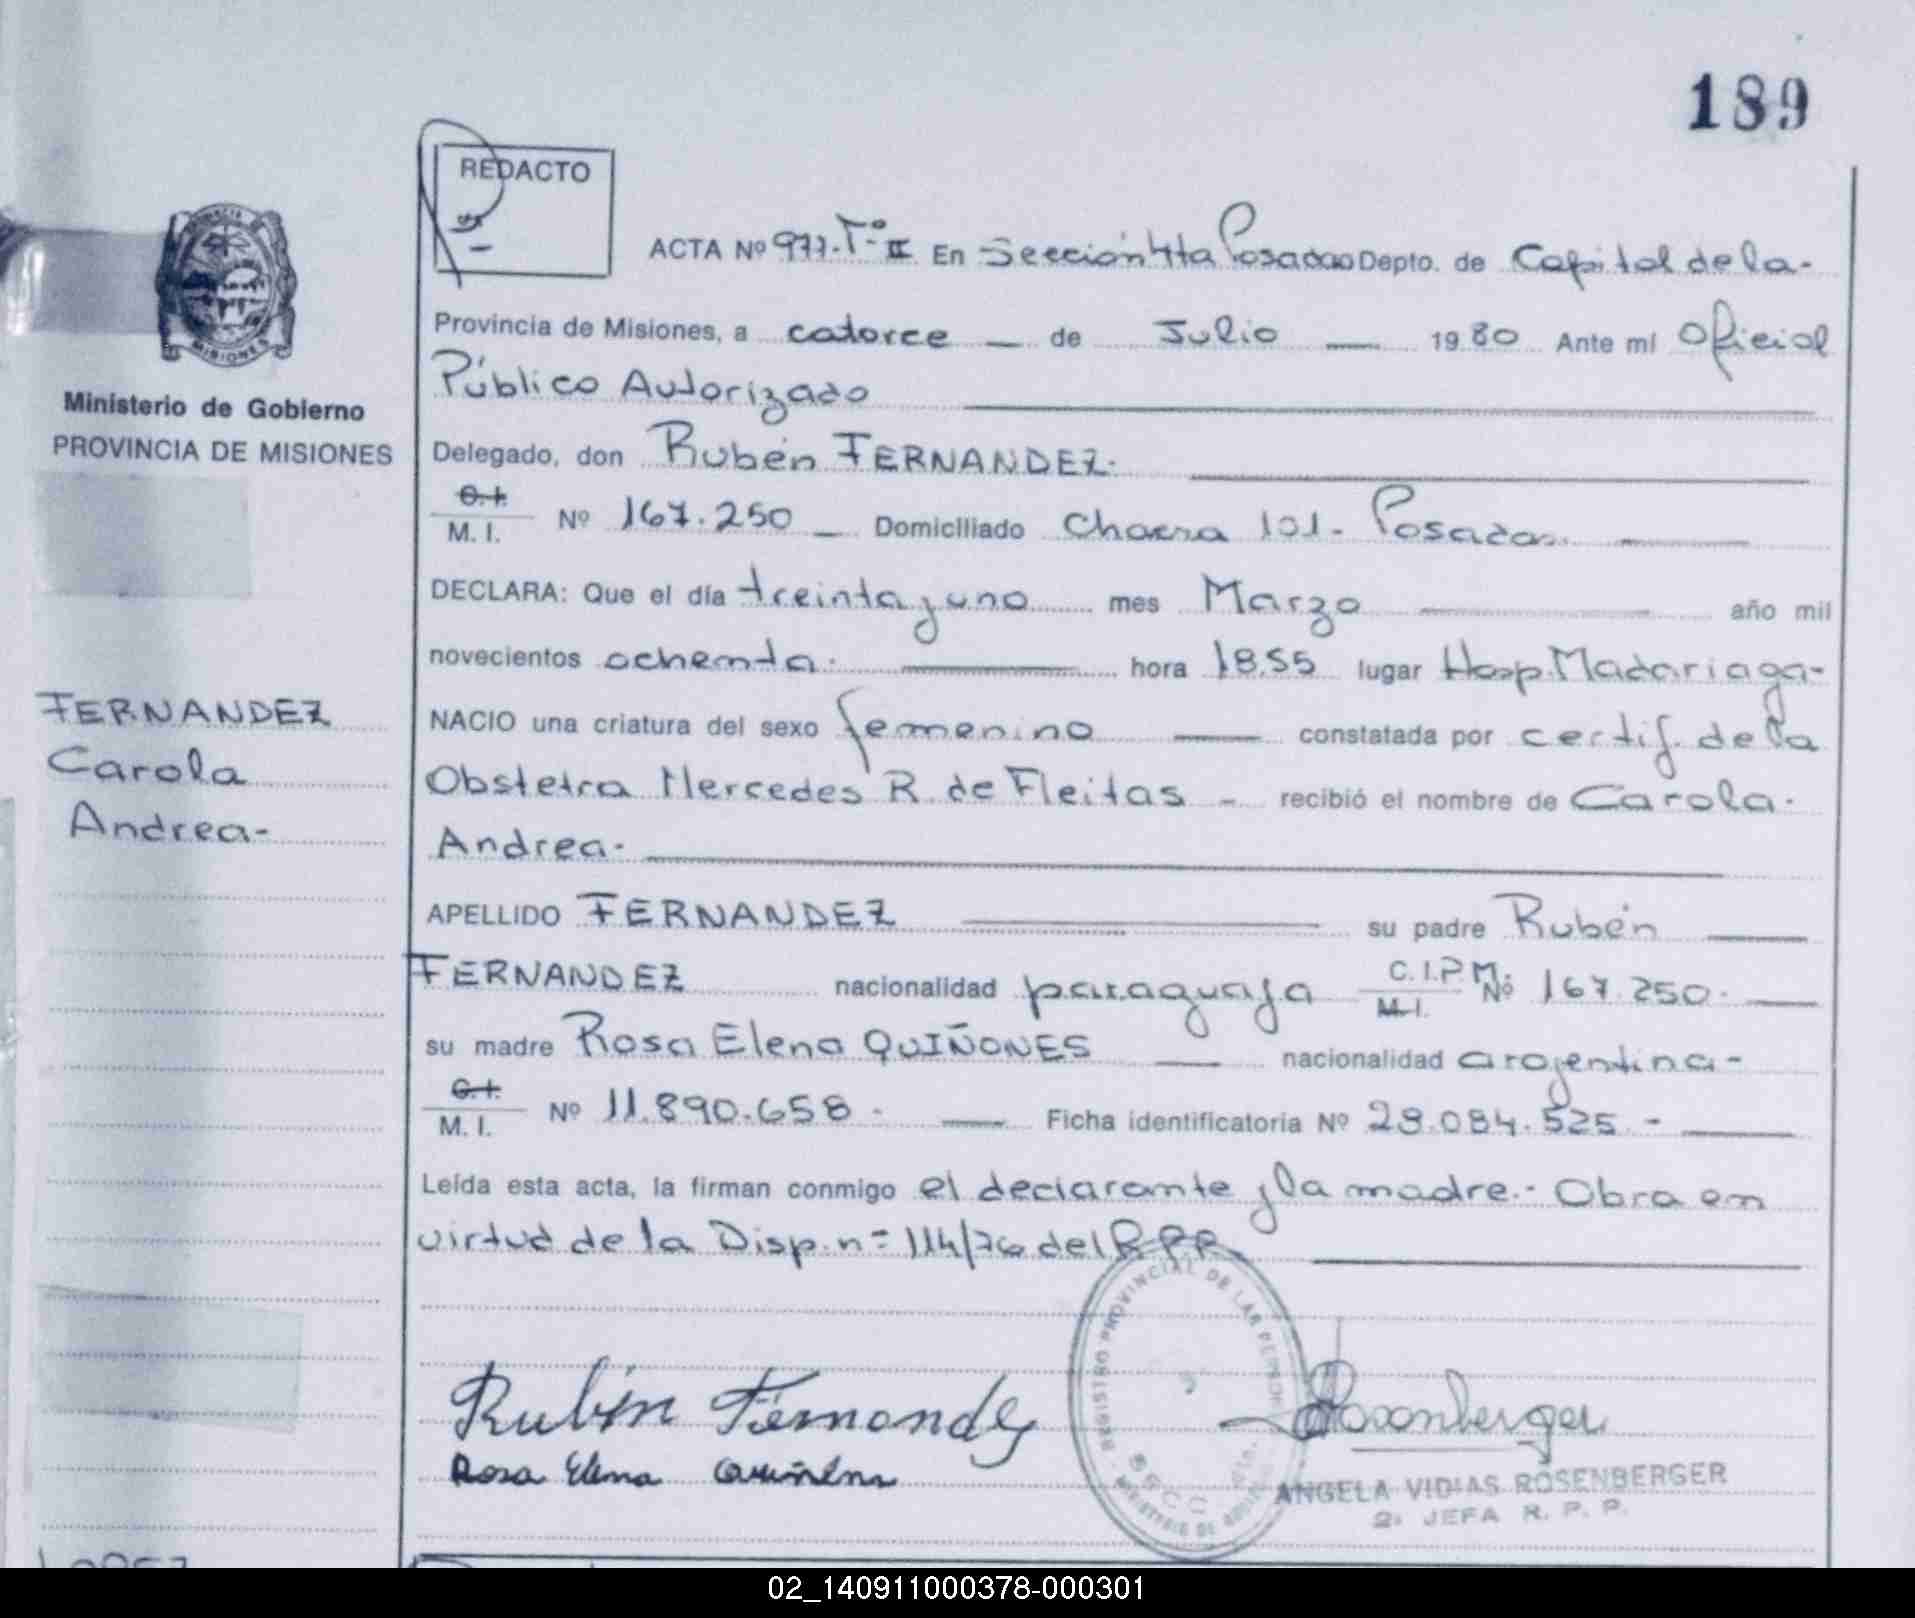 189
REDACTO
ACTA Nº 977-Tº II En Sección 4ta Posadas Depto. de Capital de la-
Provincia de Misiones, a catorce — de Julio — 1980 Ante mí Oficial
Público Autorizado
Ministerio de Gobierno
PROVINCIA DE MISIONES
Delegado, don Rubén FERNANDEZ.
C.I.
M. I. Nº 167.250 — Domiciliado Chacra 101- Posadas.
DECLARA: Que el día treinta y uno mes Marzo año mil
novecientos ochenta. hora 18.55 lugar Hosp. Madariaga-
FERNANDEZ
Carola
Andrea-
NACIO una criatura del sexo femenino — constatada por certif. de la
Obstetra Mercedes R. de Fleitas - recibió el nombre de Carola-
Andrea-
APELLIDO FERNANDEZ su padre Rubén
FERNANDEZ nacionalidad paraguaya C.I.P.M. M.I. Nº 167.250.
su madre Rosa Elena QUIÑONES — nacionalidad argentina-
C.I.
M. I. Nº 11.890.658. — Ficha identificatoria Nº 28.084.525.-
Leída esta acta, la firman conmigo el declarante y la madre.- Obra en
virtud de la Disp. nº 114/76 del R.P.P.
REGISTRO PROVINCIAL DE LAS PERSONAS
Rubén Fernandez
Rosa Elena Quiñones
Rosenberger
ANGELA VIDIAS ROSENBERGER
2ª JEFA R. P. P.
02_140911000378-000301